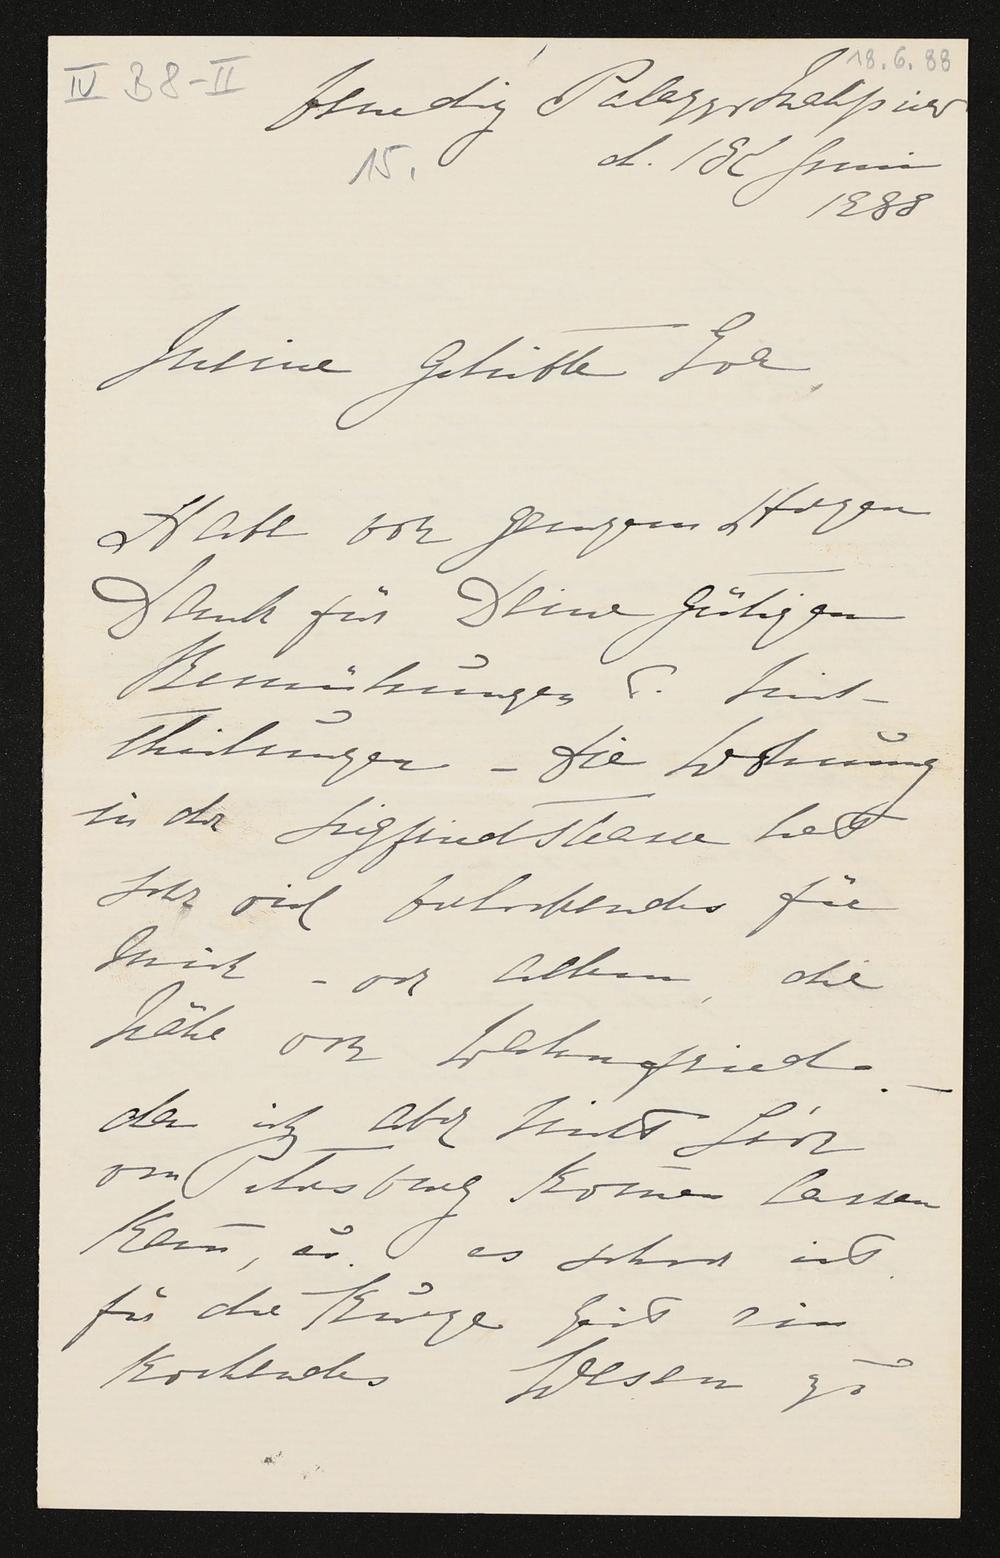 IV B 8-II
18.6.88
Venedig Palazzo Malipiero
15.
d. 18t Juni
1888
Meine Geliebte Eva
Habe von ganzem Herzen
Dank für Deine gütigen
Bemühungen u. Mit-
theilungen – die Wohnung
in der Siegfriedstrasse hat
sehr viel verlockendes für
mich – vor allem, die
Nähe von Wahnfried. –
da ich aber nicht
von Petersburg kom̅en lassen
kan̅, u. es schwer ist
für die kurze Zeit ein
kochendes Wesen zu